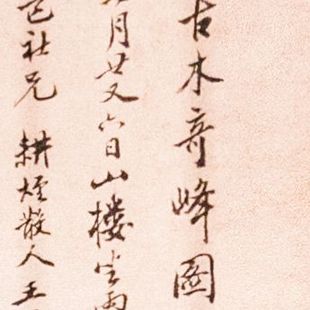 古木奇峰圖
月廿又六日山樓坐雨
社兄 耕煙散人王